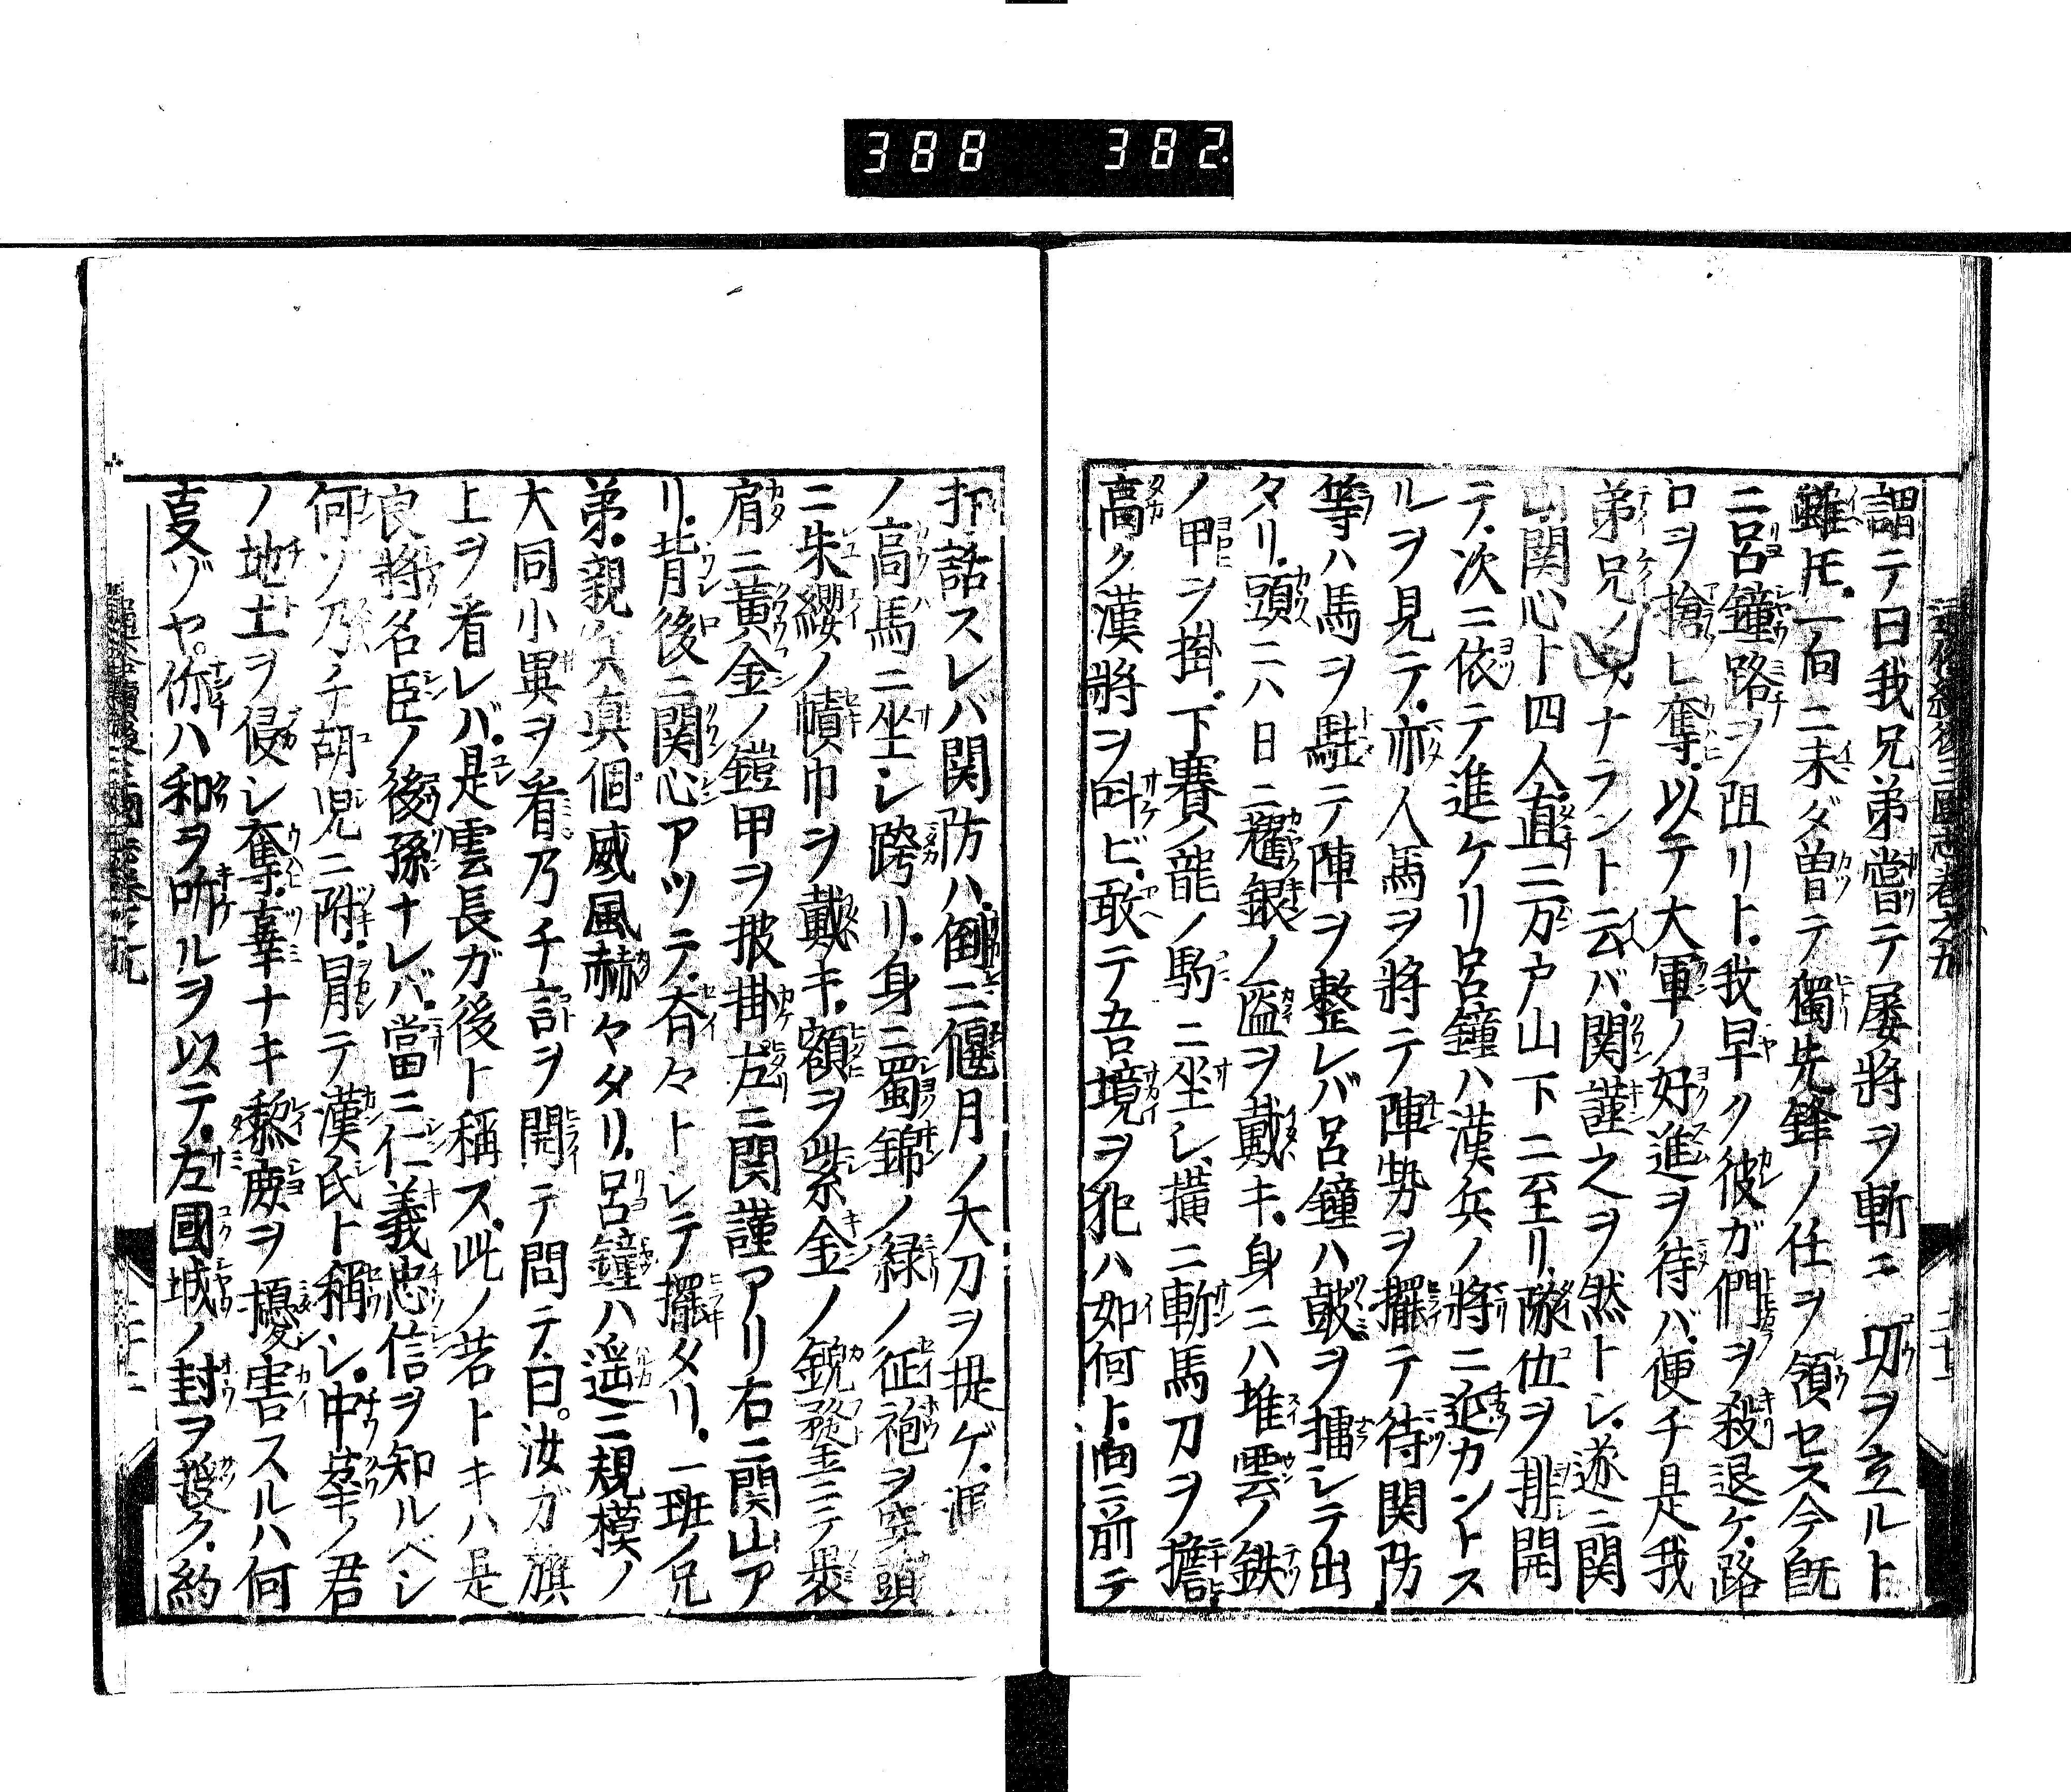 388 382
謂テ曰我兄弟嘗テ屡將ヲ斬ニ㓛ヲ立ルト
雖モ一向ニ未ダ曽テ獨先鋒ノ任ヲ領セス今既
ニ呂鐘路ヲ阻リト我早ク彼ガ們ヲ殺退ケ路
口ヲ搶ヒ奪以テ大軍ノ好進ヲ待バ便チ是我
弟兄ノ功ナラント云バ関謹之ヲ然トシ遂ニ関
山関心ト四人直ニ万户山下ニ至リ隊伍ヲ排開
テ次ニ依テ進ケリ呂鐘ハ漢兵ノ將ニ近カントス
ルヲ見テ亦人馬ヲ將テ陣勢ヲ擺テ待関防
等ハ馬ヲ駐テ陣ヲ整レバ呂鐘ハ皷ヲ擂シテ出
タリ頭ニハ日ニ耀銀ノ盔ヲ戴キ身ニハ堆雲ノ鉄
ノ甲ヲ掛下賽ノ龍ノ駒ニ坐シ横ニ斬馬刀ヲ擔
高ク漢將ヲ呌ビ敢テ吾境ヲ犯ハ如何ト向ニ前テ
打話スレバ関防ハ倒ニ偃月ノ大刀ヲ提ゲ渾
ノ高馬ニ坐シ跨リ身ニ蜀錦ノ緑ノ征袍ヲ穿頭
ニ朱纓ノ幘巾ヲ戴キ額ヲ紫金ノ兜鍪ニテ裹
肩ニ黄金ノ鎧甲ヲ披掛左ニ関謹アリ右ニ関山ア
リ背後ニ関心アツテ斉々トシテ擺タリ一班ノ兄
弟親父真個威風赫々タリ呂鐘ハ遥ニ規模ノ
大同小異ヲ看乃チ言ヲ開テ問テ曰。汝ガ旗
上ヲ看レバ是雲長ガ後ト稱ス此ノ若トキハ是
良將名臣ノ後孫ナレバ當ニ仁義忠信ヲ知ルベシ
何ソ乃チ胡児ニ附冒テ漢氏ト稱シ中華ノ君
ノ地土ヲ侵シ奪辜ナキ黎庶ヲ擾害スルハ何
叓ゾヤ。你ハ和ヲ听ルヲ以テ左國城ノ封ヲ授ク約